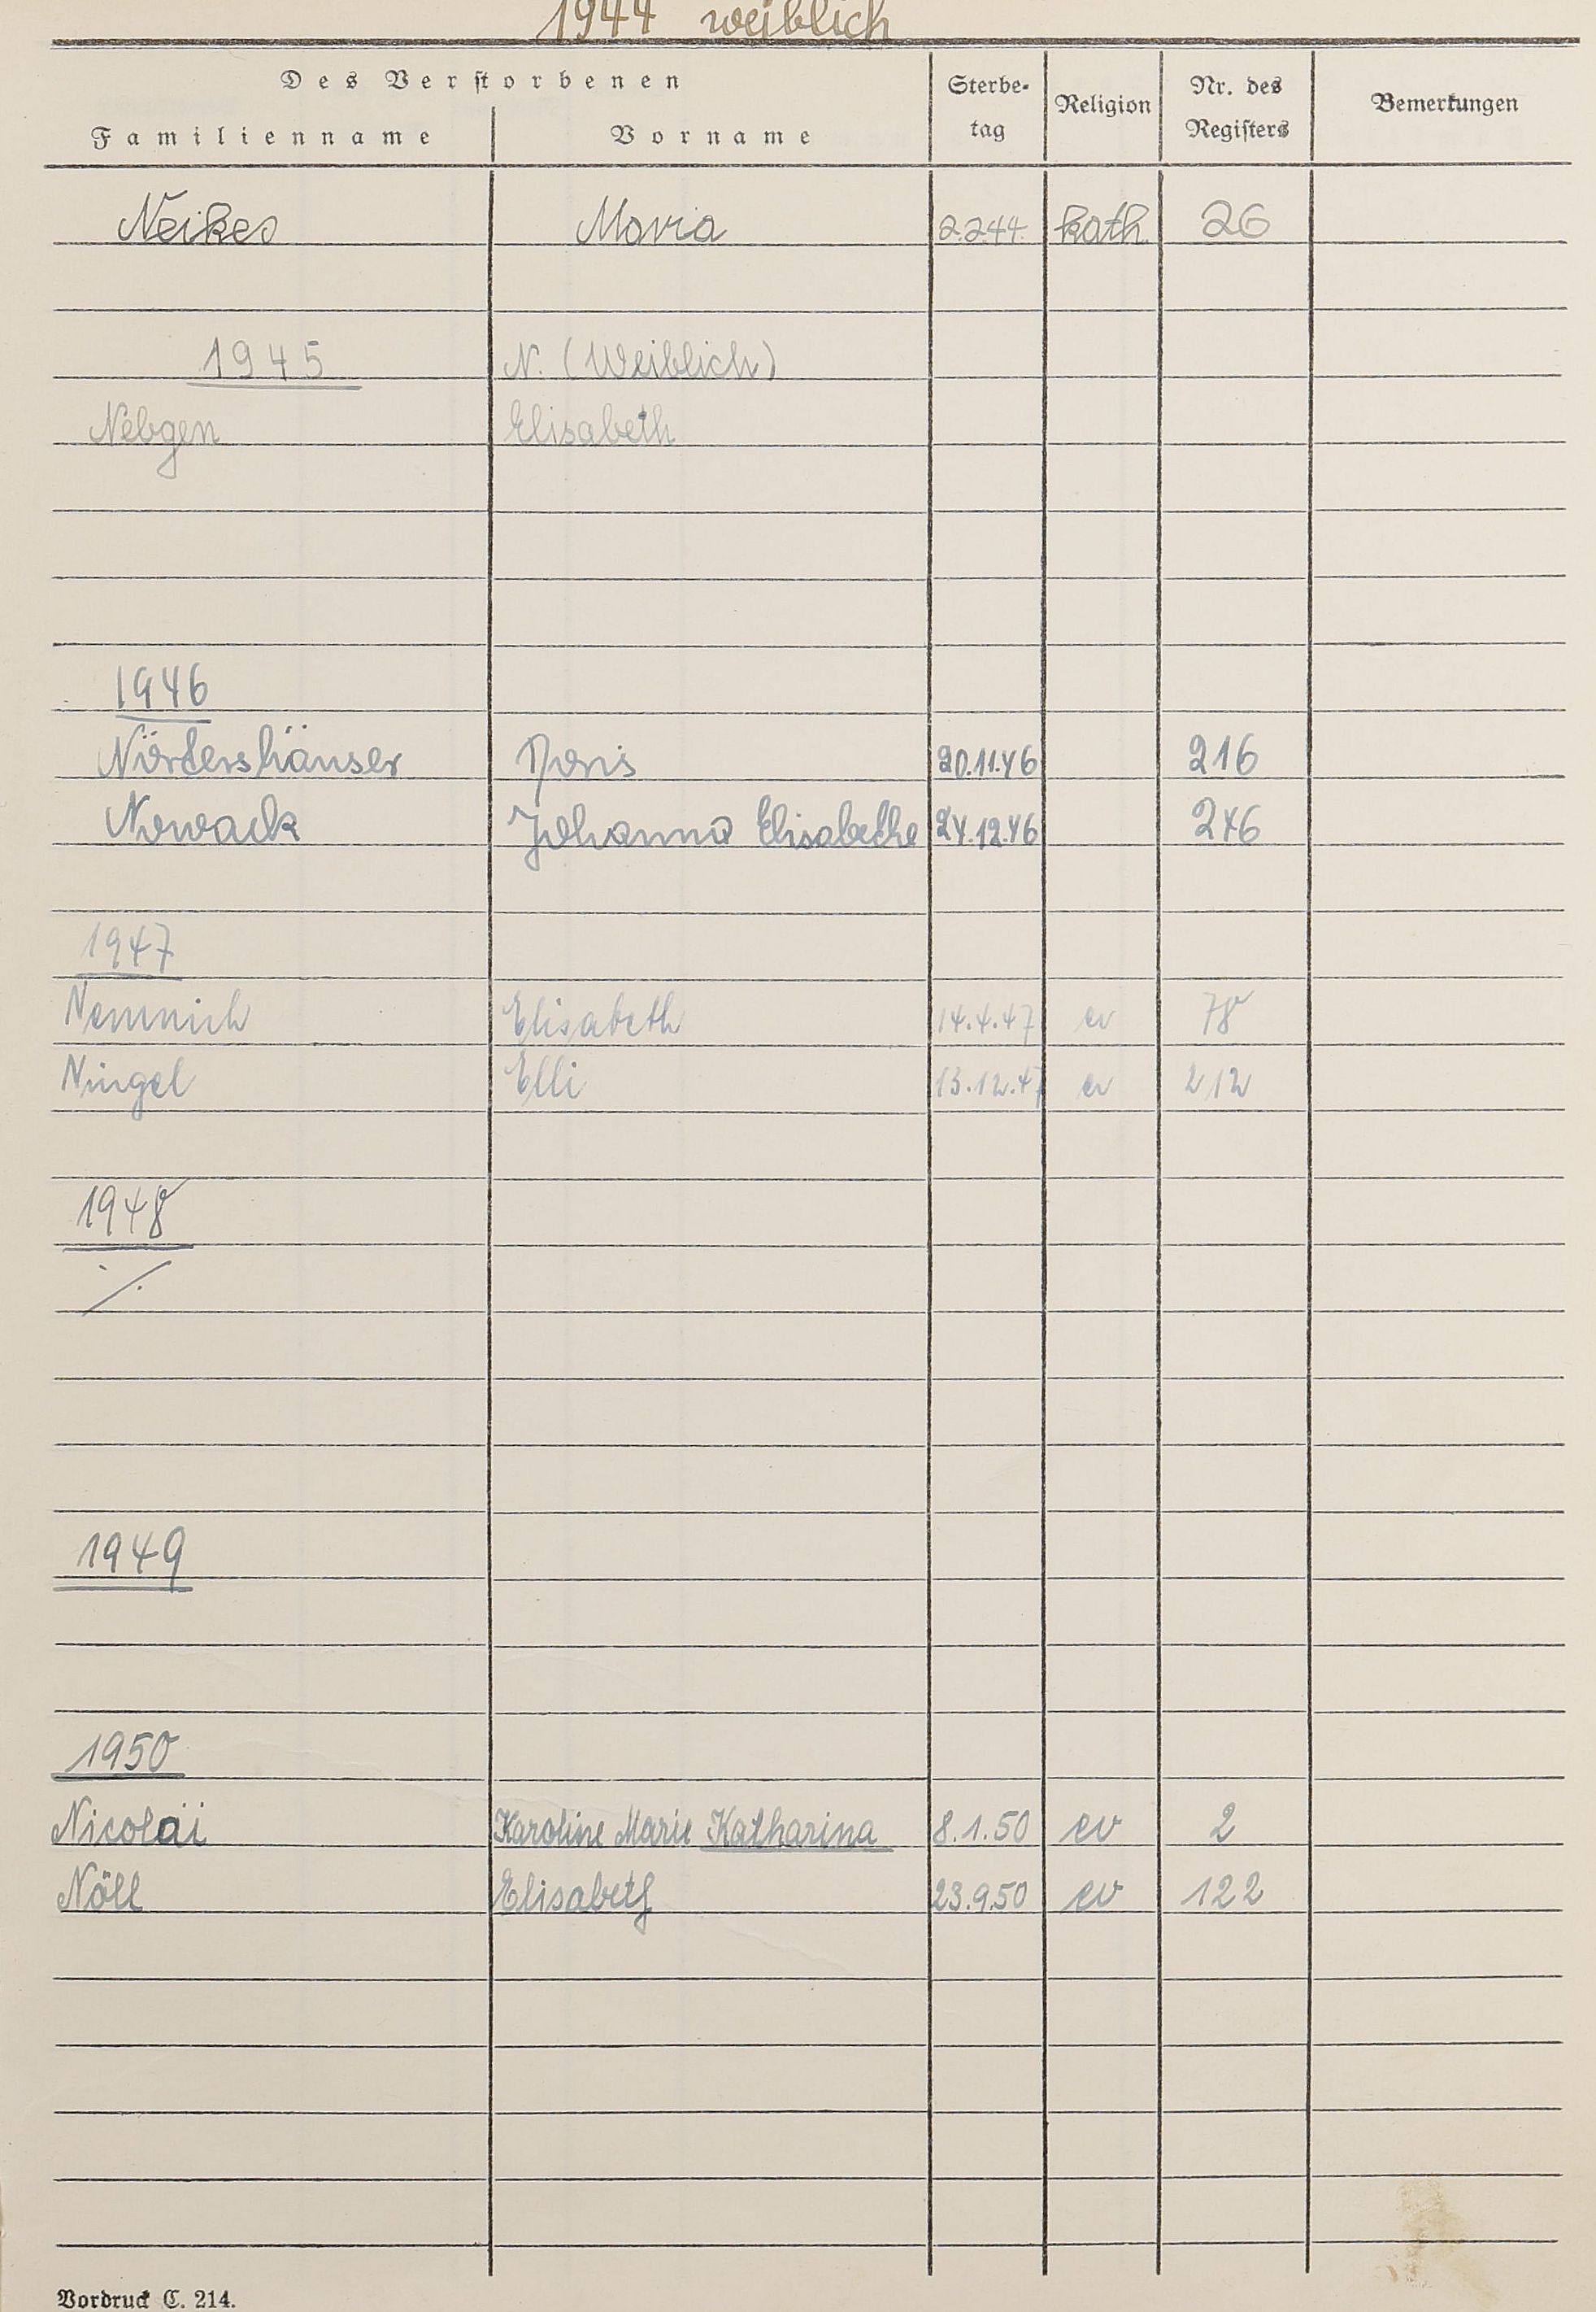 1944 weiblich
Des Verstorbenen
Familienname Vorname Sterbe-tag Religion Nr. des Registers Bemerkungen
Neikes Maria 2.2.44. kath. 26
1945 N. (Weiblich)
Nebgen Elisabeth
1946
Nördershäuser Doris 20.11.46 216
Nowack Johanna Elisabethe 24.12.46 246
1947
Nemnich Elisabeth 14.4.47 ev 78
Ningel Elli 13.12.47 ev 212
1948
·/.
1949
1950
Nicolai Karoline Marie Katharina 8.1.50 ev 2
Nöll Elisabeth 23.9.50 ev 122
Vordruck C. 214.